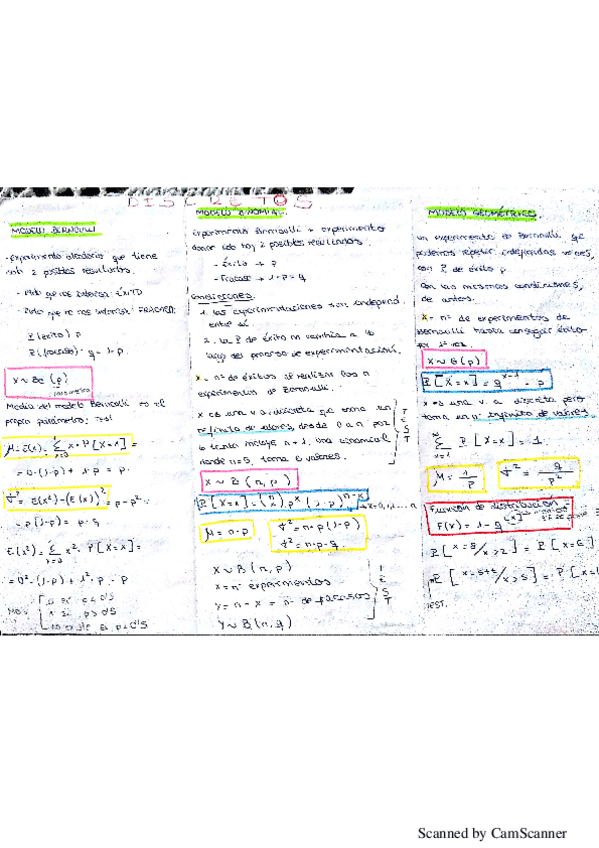 DISCRETOS
MODELO BERNOULLI
- Experimento aleatorio que tiene
solo 2 posibles resultados.
- Éxito que nos interesa: ÉXITO
que no nos interesa: FRACASO.
P(éxito) p
P(fracaso) = q = 1-p.
X ~ Be (p)
Media del modelo Bernoulli → el
propio parámetro:
μ = E(x) = Σ x · P[X=x] =
x=0
= 0·(1-p) + 1·p = p.
σ² = E(x²) - (E(x))² = p - p² =
= p(1-p) = p·q
E(x²) = Σ x² · P[X=x] =
= 0²·(1-p) + 1²·p = p
MODELO BINOMIAL
Experimento Bernoulli → experimento
donde solo hay 2 posibles resultados
- Éxito → p
- Fracaso → 1-p = q
Condiciones:
1. las experimentaciones son independ.
entre sí
2. La P de éxito no cambia a lo
largo del proceso de experimentación.
x = nº de éxitos al realizar los n
experimentos de Bernoulli.
x es una v.a. discreta que toma un nº
finito de valores, desde 0 a n por
lo tanto incluye n+1. Una binomial
donde n=5, toma 6 valores.
TEST
X ~ B (n, p)
P[X=x] = (n x) p^x (1-p)^(n-x)
x=0,1,...n
μ = n·p
σ² = n·p(1-p)
σ² = n·p·q
X ~ B(n, p)
x = nº experimentos
y = n - x = nº de fracasos
Y ~ B(n, q)
TEST
MODELO GEOMÉTRICO
un experimento de Bernoulli que
podemos repetir indefinidas veces,
con P de éxito p
con las mismas condiciones,
de antes.
x = nº de experimentos de
Bernoulli hasta conseguir éxito
por 1ª vez.
X ~ G(p)
P[X=x] = q^(x-1) · p
x es una v. a discreta pero
toma un nº infinito de valores.
Σ P[X=x] = 1
x=1
μ = 1/p
σ² = q/p²
Función de distribución
F(x) = 1 - q^[x]
P[x=8/x>2] = P[x=6]
P[x=5+5/x>5] = P[x=
TEST.
Scanned by CamScanner